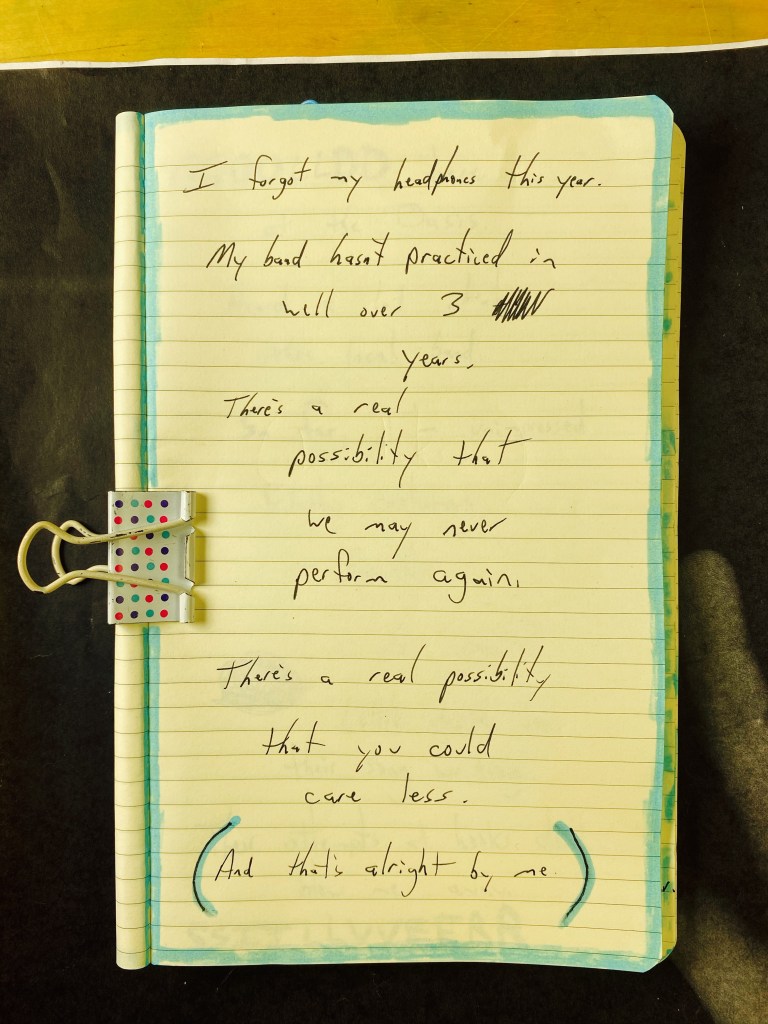 I forgot my headphones this year.
My band hasn't practiced in
well over 3
years.
There's a real
possibility that
we may never
perform again.
There's a real possibility
that you could
care less.
(And that's alright by me)